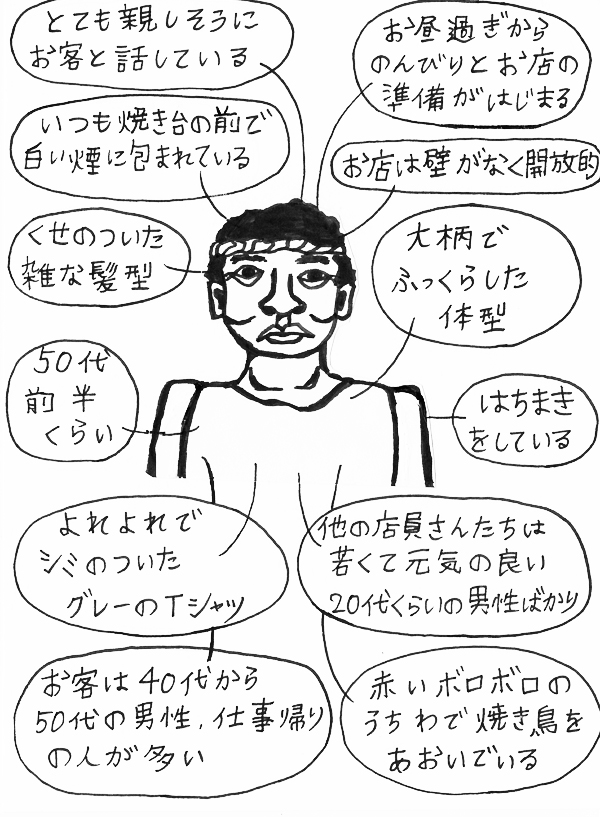 とても親しそうに
お客と話している
お昼過ぎから
のんびりとお店の
準備がはじまる
いつも焼き台の前で
白い煙に包まれている
お店は壁がなく開放的
くせのついた
雑な髪型
大柄で
ふっくらした
体型
50代
前半
くらい
はちまき
をしている
よれよれで
シミのついた
グレーのTシャツ
他の店員さんたちは
若くて元気の良い
20代くらいの男性ばかり
お客は40代から
50代の男性、仕事帰り
の人が多い
赤いボロボロの
うちわで焼き鳥を
あおいでいる